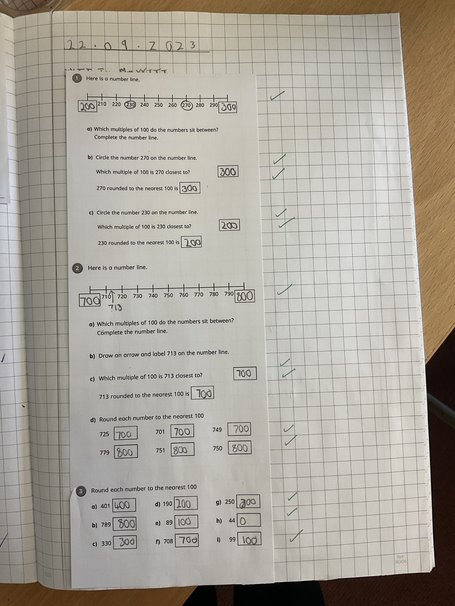 22.09.2023
1 Here is a number line.
200 210 220 230 240 250 260 270 280 290 300
a) Which multiples of 100 do the numbers sit between?
Complete the number line.
b) Circle the number 270 on the number line.
Which multiple of 100 is 270 closest to? 300
270 rounded to the nearest 100 is 300
c) Circle the number 230 on the number line.
Which multiple of 100 is 230 closest to? 200
230 rounded to the nearest 100 is 200
2 Here is a number line.
700 710 720 730 740 750 760 770 780 790 800
713
a) Which multiples of 100 do the numbers sit between?
Complete the number line.
b) Draw an arrow and label 713 on the number line.
c) Which multiple of 100 is 713 closest to? 700
713 rounded to the nearest 100 is 700
d) Round each number to the nearest 100
725 700 701 700 749 700
779 800 751 800 750 800
3 Round each number to the nearest 100
a) 401 400 d) 190 200 g) 250 300
b) 789 800 e) 89 100 h) 44 0
c) 330 300 f) 708 700 i) 99 100